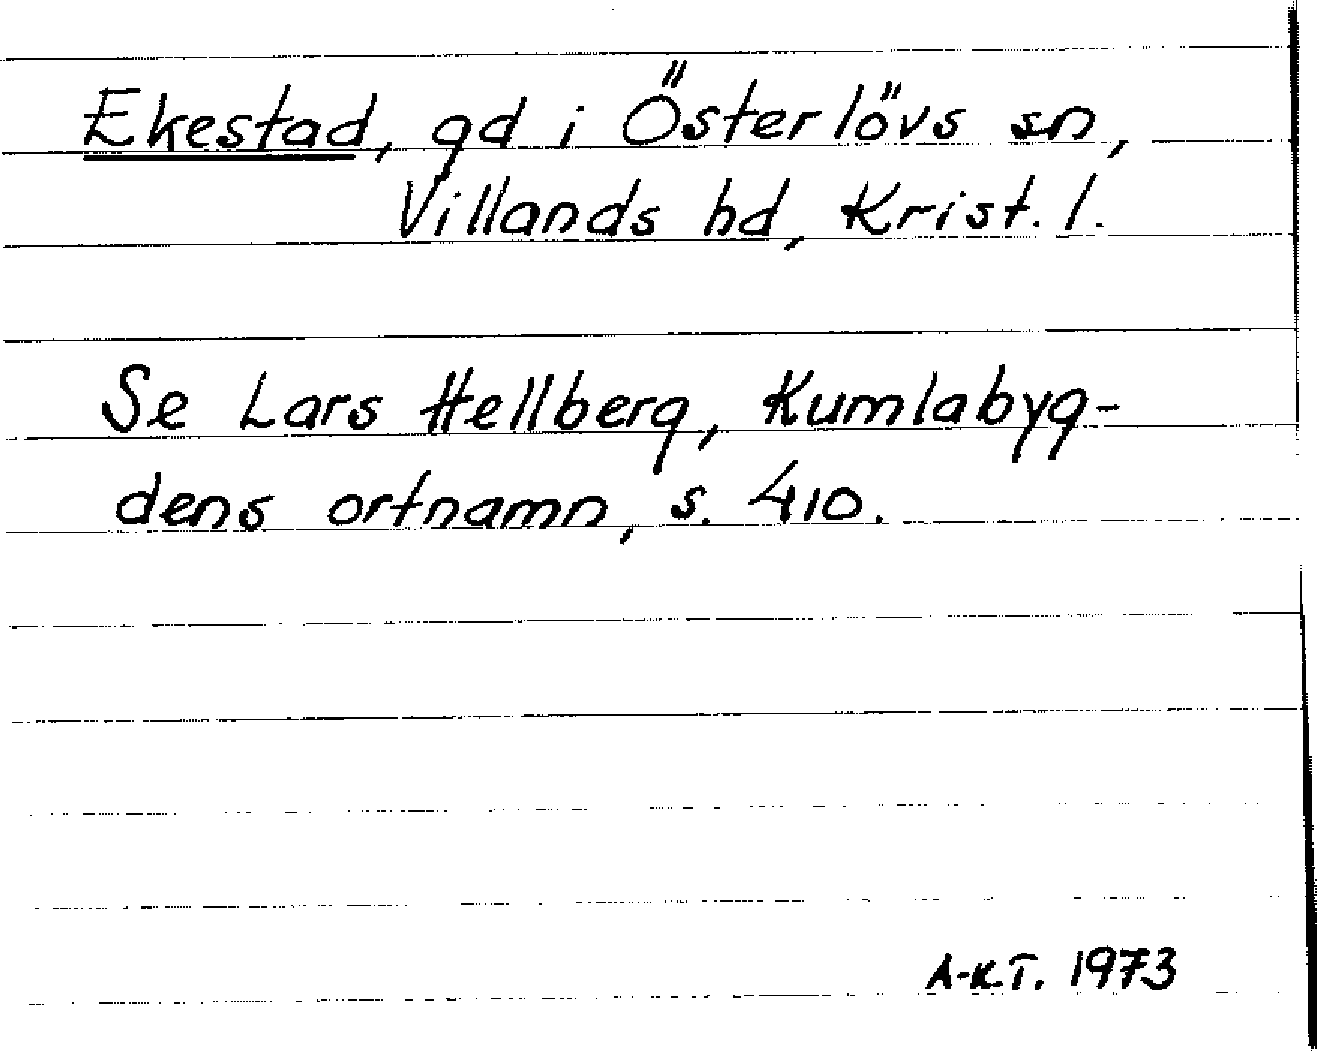 Ekestad, gd i Österlövs sn,
Villands hd, Krist. l.
Se Lars Hellberg, Kumlabyg-
dens ortnamn, s. 410.
A-K.T. 1973